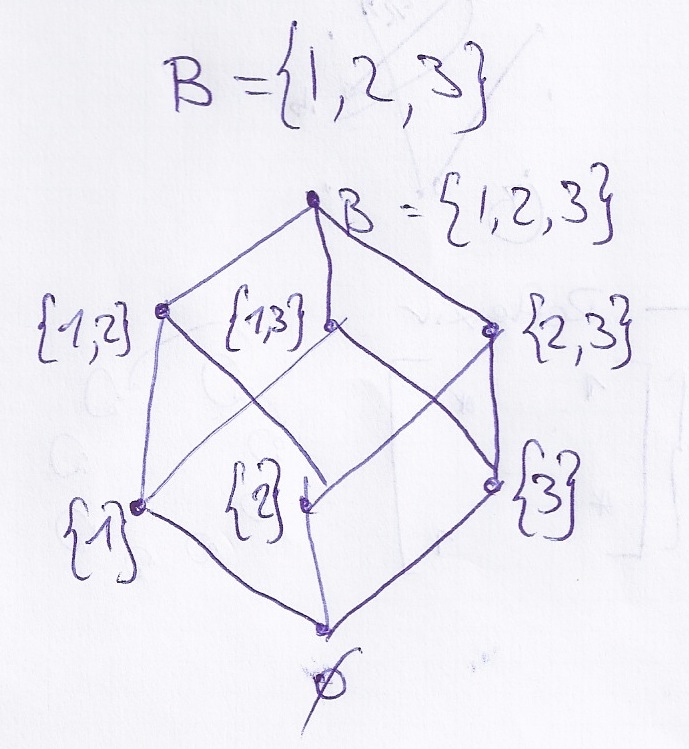 B = {1, 2, 3}
B = {1, 2, 3}
{1,2} {1,3} {2,3}
{1} {2} {3}
∅